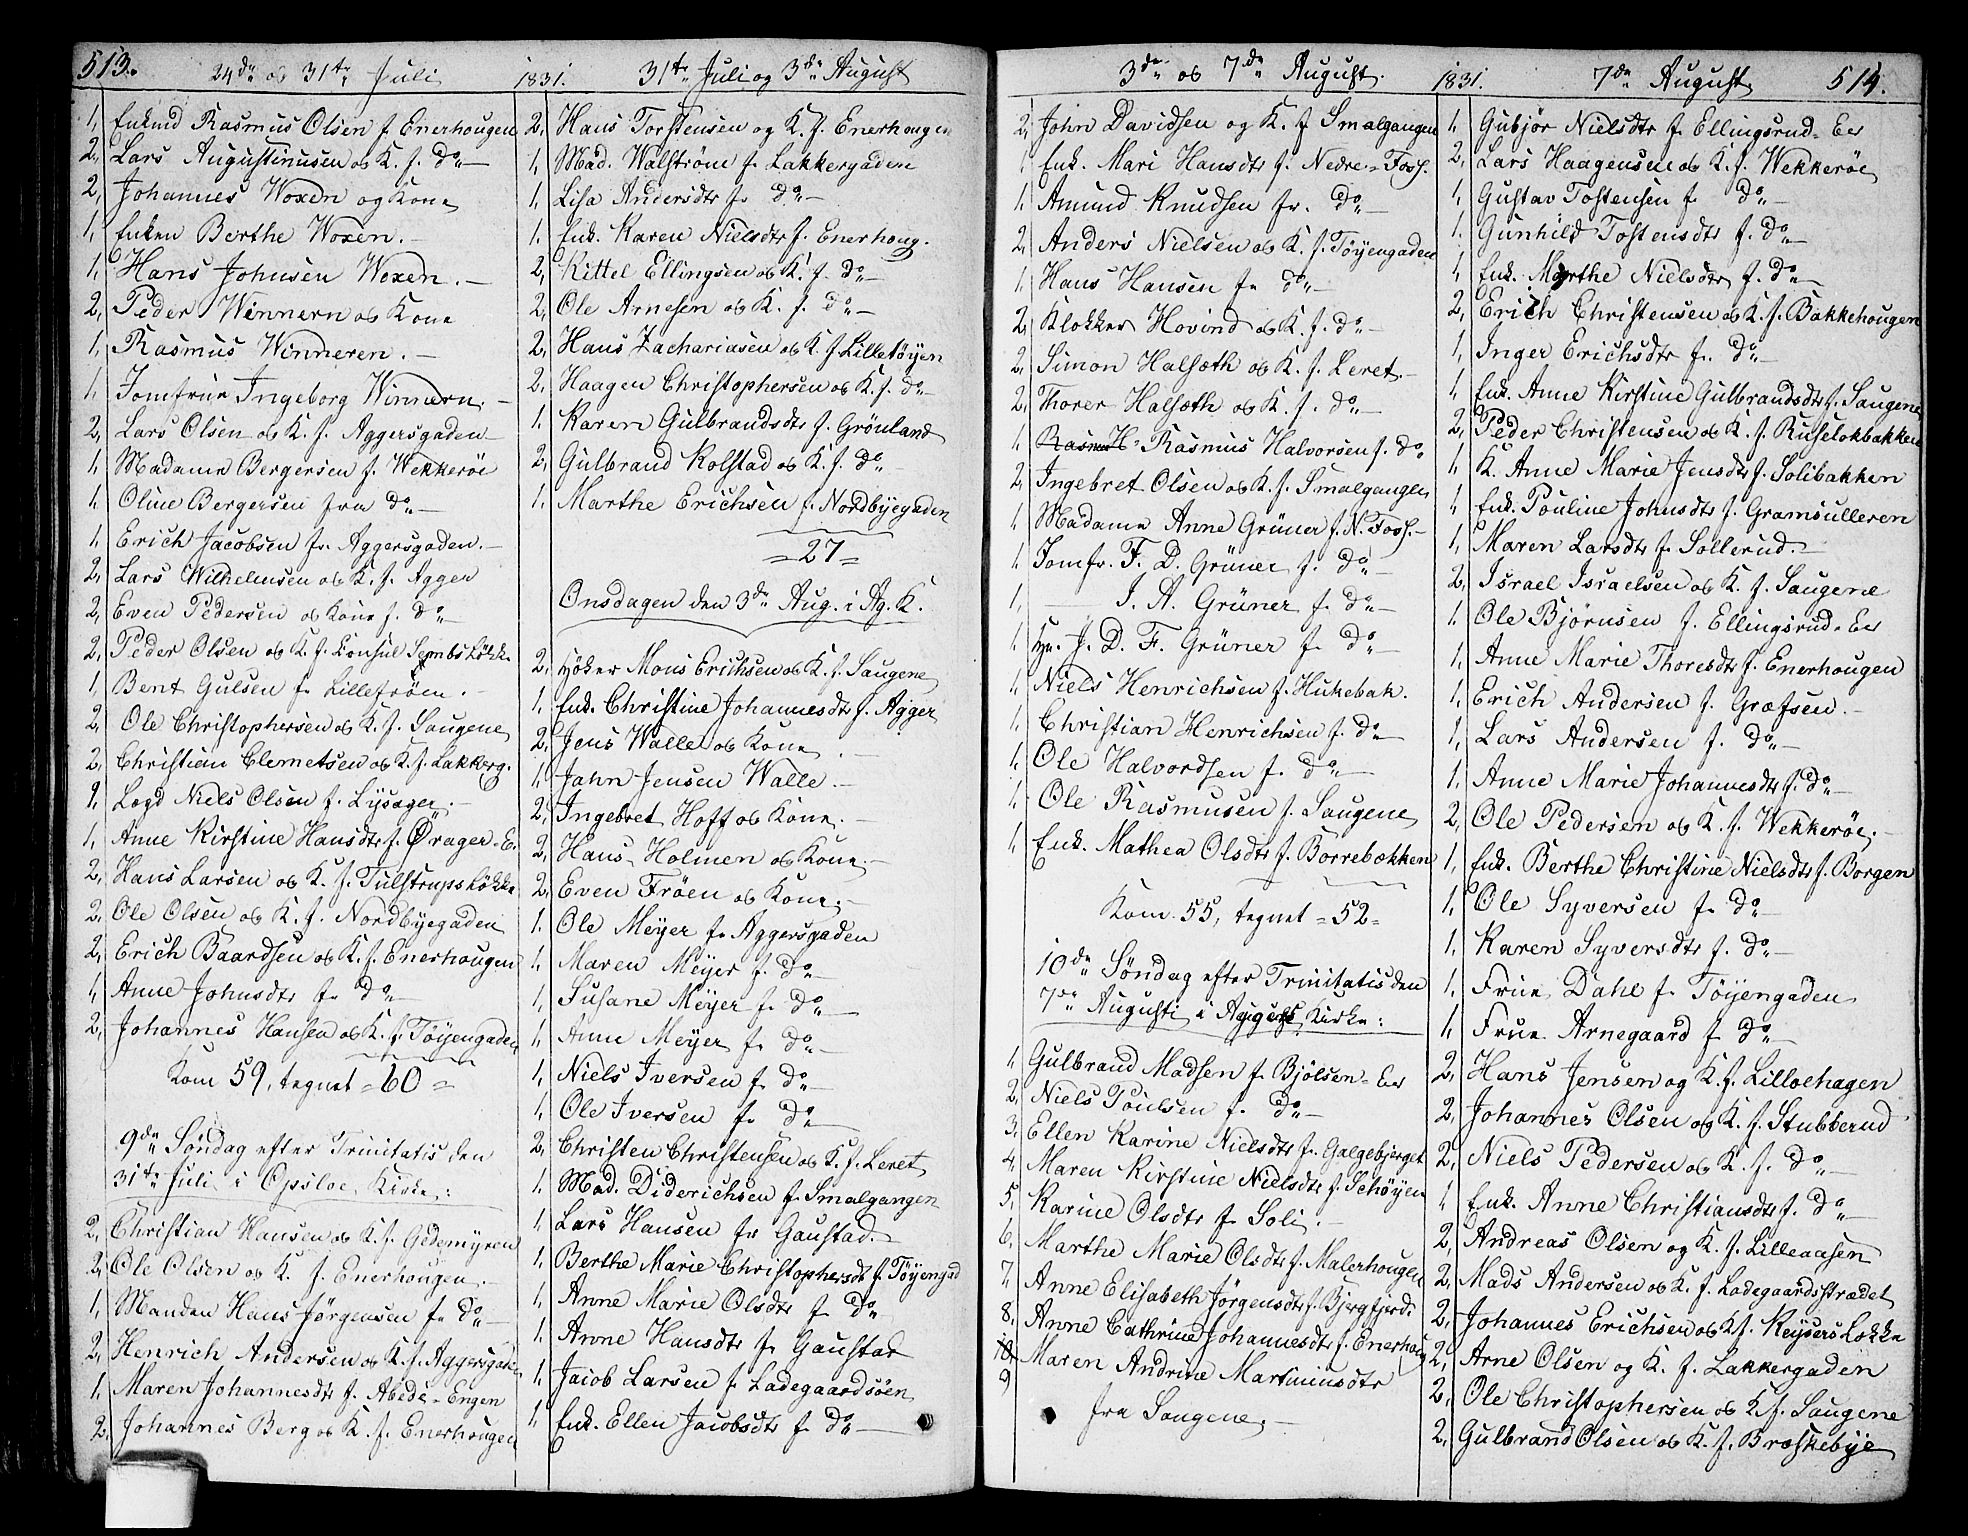 513.
24de og 31te Juli
1831.
31te Juli og 3de August
1, Enkmd Rasmus Olsen f. Enerhougen
2, Lars Augustinusen og K. f. Do
2, Johannes Woxen og Kone
1, Enken Berthe Woxen.
1, Hans Johnsen Woxen.
2, Peder Winnern og Kone
1, Rasmus Winneren.
1, Jomfrue Ingeborg Winnern.
2, Lars Olsen og K. f. Aggersgaden
1, Madame Bergersen f. Wekkerøe
1, Oline Bergersen fra Do
1, Erich Jacobsen fr. Aggersgaden.
2, Lars Wilhelmsen og K. f. Agger
2, Even Pedersen og Kone f. Do
2, Peder Olsen og K. f. Consul Sembs Løkke
1, Bent Gulsen fr Lillefrøen.
2, Ole Christophersen og K. f. Saugene
2, Christian Clemetsen og K. f. Lakkerg.
1, Logd Niels Olsen f. Lysager.
1, Anne Kirstine Hansdtr f. Ørager-E.
2, Hans Larsen og K. f. Tulstrups Løkke
2, Ole Olsen og K. f. Nordbyegaden
2, Erich Baardsen og K. f. Enerhougen
1, Anne Johnsdtr fr Do
2, Johannes Hansen og K. f. Tøyengaden
Kom 59, tegnet = 60 =
9de Søndag efter Trinitatis den
31te Juli i Opsloe Kirke:
2, Christian Hansen og K. f. Gedemyren
2, Ole Olsen og K. f. Enerhougen.
1, Manden Hans Jørgensen fr Do
2, Henrich Andersen og K. f. Aggersgaden
1, Maren Johannesdtr f. Abeds-Engen
2, Johannes Berg og K. f. Enerhougen
2, Hans Torstensen og K. f. Enerhougen
1, Mad. Walstrøm fr Lakkergaden
1, Lisa Andersdtr fr Do
1, Enk. Karen Nielsdtr f. Enerhoug.
2, Kittel Ellingsen og K. f. Do
2, Ole Arnesen og K. f. Do
2, Hans Zachariasen og K. f. Lilletøyen
2, Haagen Christophersen og K. f. Do
1, Karen Gulbrandsdtr f. Grönland
2, Gulbrand Kolstad og K. f. Do
1, Marthe Erichsen f. Nordbyegaden
= 27 =
Onsdagen den 3de Aug. i Ag. K.
2, Høker Mons Erichsen og K. f. Saugene
1, Enk. Christine Johannesdtr f. Agger
2, Jens Walle og Kone
1, Jahn Jensen Walle.
2, Ingebret Hoff og Kone.
2, Hans Holmen og Kone.
2, Even Frøen og Kone.
1, Ole Meyer fr Aggersgaden
1, Maren Meyer f. Do
1, Susane Meyer f. Do
1, Anne Meyer f. Do
1, Niels Iversen f. Do
1, Ole Iversen f. Do
2, Christen Christensen og K. f. Leret
1, Mad. Diderichsen f. Smalgangen
1, Lars Hansen fr Gaustad.
1, Berthe Marie Christophersdt f. Töyengad
1, Anne Marie Olsdtr f. Do
1, Anne Hansdtr f. Gaustad
1, Jacob Larsen f. Ladegaardsøen
1, Enk. Ellen Jacobsdtr f. Do
3de og 7de August.
1831.
7de August
514.
2, John Davidsen og K. f. Smalgangen
1, Enk. Mari Hansdtr f. Nedre-Foss.
1, Amund Knudsen fr. Do
2, Anders Nielsen og K. f. Töyengaden
1, Hans Hansen fr Do
2, Klokker Hovind og K. f. Do
2, Simon Halsæth og K. f. Leret.
2, Thorer Halsæth og K. f. Do
1, Rasmus H= Rasmus Halvorsen f. Do
2, Ingebret Olsen og K. f. Smalgangen
1, Madame Anne Grüner f. N. Foss.
1, Jomfr. F. D. Grüner f. Do
1, J. A. Grüner f. Do
1, Hr. J. D. F. Grüner f. Do
1, Niels Henrichsen f. Hukebak.
1, Christian Henrichsen f. Do
1, Ole Halvordsen f. Do
1, Ole Rasmusen f. Saugene
1, Enk. Mathea Olsdtr f. Borrebækken
Kom 55, tegnet = 52 =
10de Søndag efter Trinitatis den
7de Augusti i Aggers Kirke:
1, Gulbrand Madsen f. Bjølsen-Eer
2, Niels Poulsen f. Do
3, Ellen Karine Nielsdtr fr. Galgebjerget
4, Maren Kirstine Nielsdtr f. Schøyen
5, Karine Olsdtr f. Soli.
6, Marthe Marie Olsdtr f. Malerhougen
7, Anne Elisabeth Jørgensdtr f. Bjergfjerd:
8, Anne Cathrine Johannesdtr f. Enerhoug
10, Maren Andrine Martiniusdtr
9
fra Saugene.
1, Gubjør Nielsdtr f. Ellingsrud-Eer
2, Lars Haagensen og K. f. Wekkerøe
1, Gustav Tostensen f. Do
1, Gunhild Tostensdtr f. Do
1, Enk. Marthe Nielsdtr f. Do
2, Erich Christensen og K. f. Bakkehougen
1, Inger Erichsdtr f. Do
1, Enk. Anne Kirstine Gulbrandsdtr f. Saugene
2, Peder Christensen og K. f. Ruseløkbakken
1, K. Anne Marie Jensdtr f. Solibakken
1, Enk. Pouline Johnsdtr f. Gramsulleren
1, Maren Larsdtr f. Sollerud.
2, Israel Israelsen og K. f. Saugene
1, Ole Bjørnsen f. Ellingsrud-Eer
1, Anne Marie Thoresdtr f. Enerhougen
1, Erich Andersen f. Græfsen.
1, Lars Andersen f. Do
1, Anne Marie Johannesdtr f. Do
2, Ole Pedersen og K. f. Wekkerøe.
1, Enk. Berthe Christine Nielsdtr f. Borgen
1, Ole Syversen f. Do
1, Karen Syversdtr f. Do
1, Frue Dahl fr Tøyengaden
1, Frue Arnegaard f. Do
2, Hans Jensen og K. f. Lilloehagen
2, Johannes Olsen og K. f. Stubberud
2, Niels Pedersen og K. f. Do
1, Enk. Anne Christiansdtr f. Do
2, Andreas Olsen og K. f. Lilleaasen
2, Mads Andersen og K. f. Ladegaardsstrædet
2, Johannes Erichsen og K. f. Keysers Løkke
2, Arne Olsen og K. f. Lakkergaden
2, Ole Christophersen og K. f. Saugene
2, Gulbrand Olsen og K. f. Braskebye